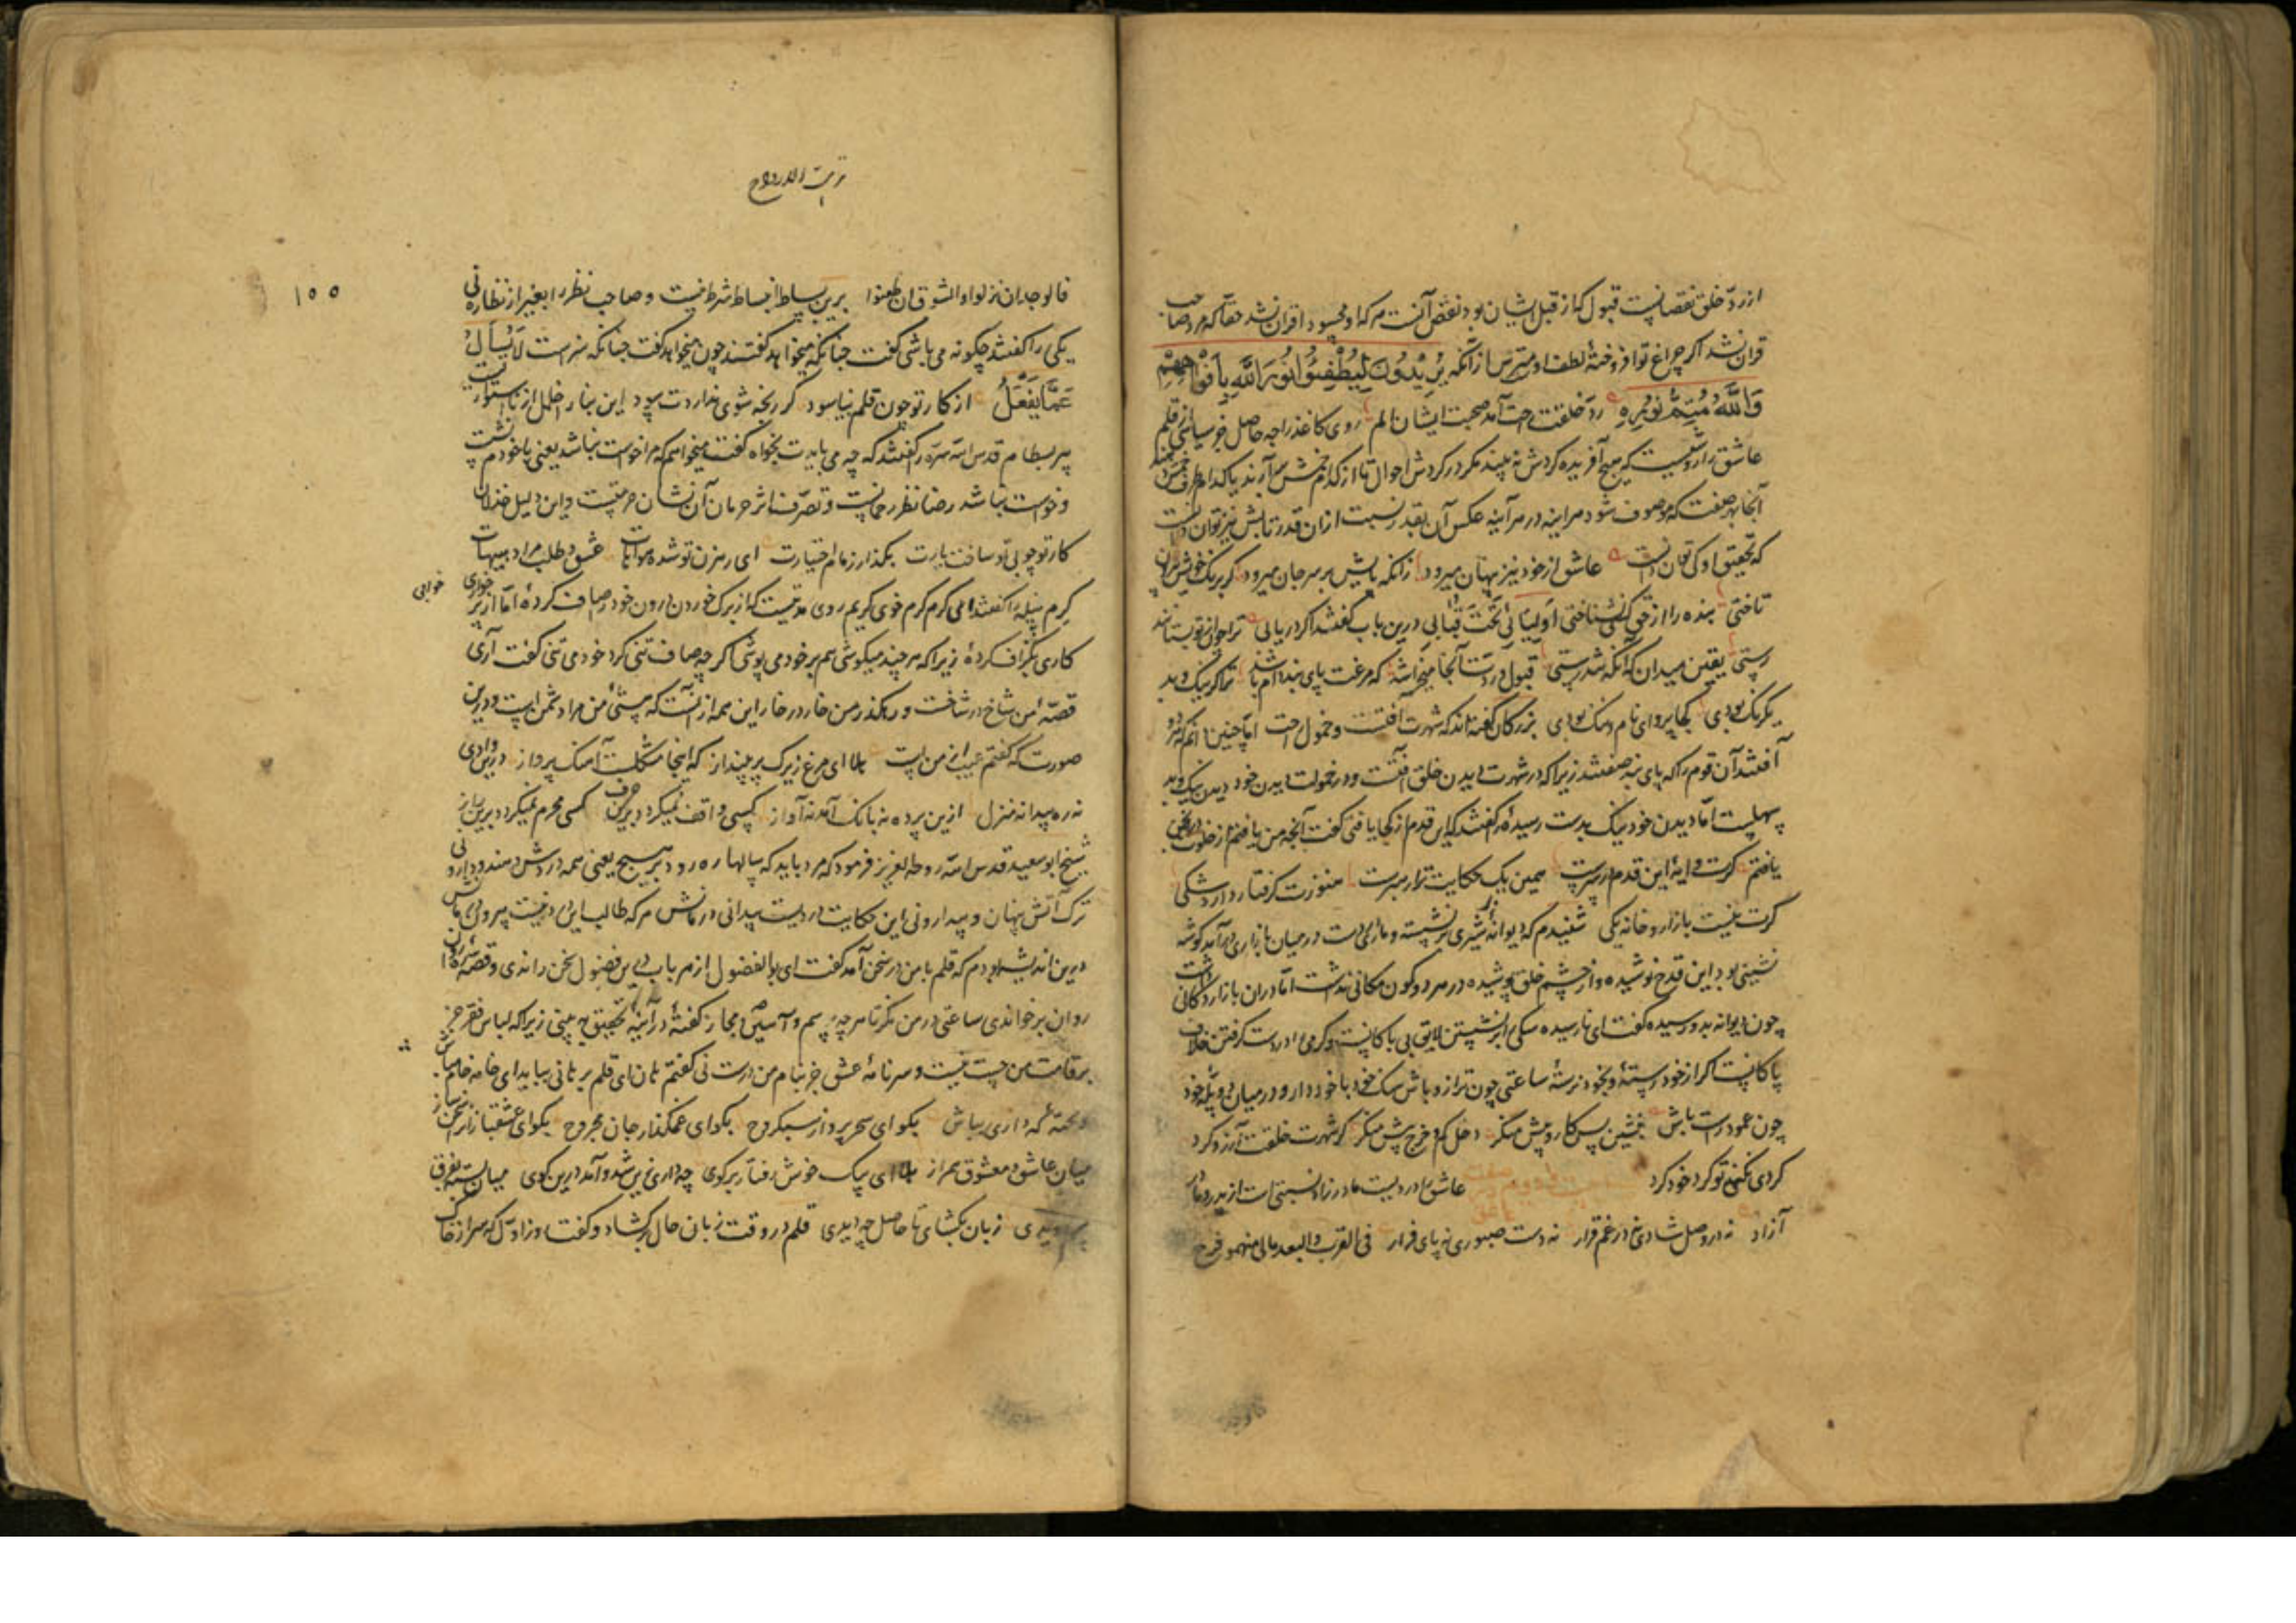 از رد خلق نقصان نیست قبول که از قبل ایشان بود نقص آنست هر که او محسود اقران نشد حقا که مرد صاحب
قران نشد اگر چراغ تو افروختهٔ لطف اوست مترس از آنکه یُرِیْدُوْنَ لِیُطْفِئُوْا نُوْرَ اللّٰهِ بِاَفْوَاهِهِمْ
وَاللّٰهُ مُتِمُّ نُوْرِهٖ رد خلقت راحت آمد صحبت ایشان الم روی کاغذ را چه حاصل جز سیاهی از قلم
عاشق را روئیست که هیچ آفریده گردش نه بیند مگر در گردش احوال تا از کدام
آنجا بهر صفت که موصوف شود هر آینه در هر آینه عکس آن بقدر نسبت از آن قدر تابش نیز توان دانست
که تحقیق او کی توان دانست عاشق از خود نیز پنهان میرود زانکه پایش بر سر جان میرود گر برنگ خویش
تاختی بنده را از حق کی شناختی اَولیائی تَحْتَ قبابی درین باب گفتند اگر دریابی ترا چو از تو بستانند
رستی یقین میدان که آنگه شد رستی قبول و ردت آنجا میخراشد که مرغت پای بند دام باشد ترا گر نیک و بد
یکرنگ بودی کجا پروای نام و ننگ بودی بزرگان گفته‌اند که شهرت آفتست و خمول راحت اما چنین دانم که هر دو
آفتند آن قوم را که پای بند صفتند زیرا که در شهرت دیدن خلق آفتست و در خمولت دیدن خود دیدن نیک و بد
سهلست اما دیدن خود نیک بدست رسیدهٔ را گفتند که این قدم از کجا یافتی گفت آنچه من یافتم از خلوت
یافتم گرت دایهٔ این قدم در سرست همین یک حکایت ترا رهبرست هنوزت گرفتار دارد شکی
گرت نیست بازار و خانه یکی شنیدم که دیوانهٔ بر شیری نشسته و ماری در دست در میان بازاری درآمد گوشه
نشینی بود این قدح نوشیده و از چشم خلق پوشیده در هر دو کون مکانی نداشت اما در آن بازار دکانی داشت
چون دیوانه بدو رسیده گفت ای نارسیده سگی را بر نشستن لایق بی باکانست و کرمی را در دست گرفتن خلاف
پاکانست اگر از خود رستهٔ و بخود نرستهٔ ساعتی چون ترازو باش سنگ خود با خود دار و در میان دو پلهٔ خود
چون عمود راست باش بنشین پس کار و پیش منگر دخل کم و خرج بیش منگر گر شهرت خلقت آرزو کرد
کردی نکنی تو گرد خود گرد عاشق را دردیست مادرزاد نسبتی است از پدر و مادر
آزاد نه در وصل شادی نه در غم قرار نه دست صبوری نه پای فرار فی القرب والبعد مالی منهمو فرح
نزهت الارواح
۱۵۵
فالوجد ان نزلوا والشوق ان ظعنوا برین بساط انبساط شرط نیست و صاحب نظر را بغیر از نظاره نی
یکی را گفتند چگونه می باشی گفت چنانکه میخواهد گفتند چون میخواهد گفت چنانکه هست لَا یُسْأَلُ
عَمَّا یَفْعَلُ از کار تو چون قلم نیاسود گر رنجه شوی نداردت سود این بنا را خلل از ناراستیست
پیر بسطام قدس الله سره را گفتند که چه می بایدت بخواه گفت میخواهم که مرا خواست نباشد یعنی با خودم نشست
و خواست نباشد رضا نظر رحمانیست و تصرف اثر حرمان آن نشان حرمتیست و این دلیل خذلان
کار تو چو بی تو ساخت یارت بگذار زمام اختیارت ای رهزن تو شده هوایات عشق و طلب مراد هیهات
کرم پیله را گفتند ای کرم کرم خوی کریم روی مدتیست که از برگ خوردن درون خود را صاف کردهٔ اما از پر خواری خوابی
کاری بگزاف کردهٔ زیرا که هر چند میکوشی هم بر خود می پوشی اگر چه صاف تنی گرد خود می تنی گفت آری
قصهٔ من شاخ در شاخست و رهگذر من خار در خار این همه از آنست که هستئ من مراد شمن است و درین
صورت که گفتم غیب از من است هلا ای مرغ زیرک پر بینداز که اینجا مشکلست آهنگ پرواز درین وادی
نه ره پیدا نه منزل ازین پرده نه بانگ آمد نه آواز کسی واقف نمیگردد برین حرف کسی محرم نمیگردد برین راز
شیخ ابوسعید قدس الله روحه العزیز فرمود که مرد باید که سالها ره رود بر هیچ یعنی همه در دوش دهند و دارو نی
ترک آتش پنهان و پیدا رونی این حکایت دردیست پیدا نی درمانش هر که طالب این دردست
درین اندیشه بودم که قلم با من در سخن آمد گفت ای بوالفضول از هر باب درین فضول سخن راندی و قصهٔ
روان برخواندی ساعتی در من نگر تا هر چه برسم و آئین و مجاز گفتهٔ در آینهٔ تحقیق به بینی زیرا که لباس فقر جز
بر قامت من چست نیست و سرنامهٔ عشق جز بنام من درست نی گفتم هان ای قلم بر تا نی بیا بدای خامه خام
وخته که داری بباش بگو ای سحر پرداز سبکروح بگو ای غمگذار جان مجروح بگو ای عشقباز از سخن ساز
میان عاشق و معشوق همراز هلا ای پیک خوش رفتار برگوی چه داری زین شد و آمد درین کوی
زبان بگشای تا حاصل چه دیدی قلم در وقت زبان حال برگشاد و گفت روز اول که سر از خاک